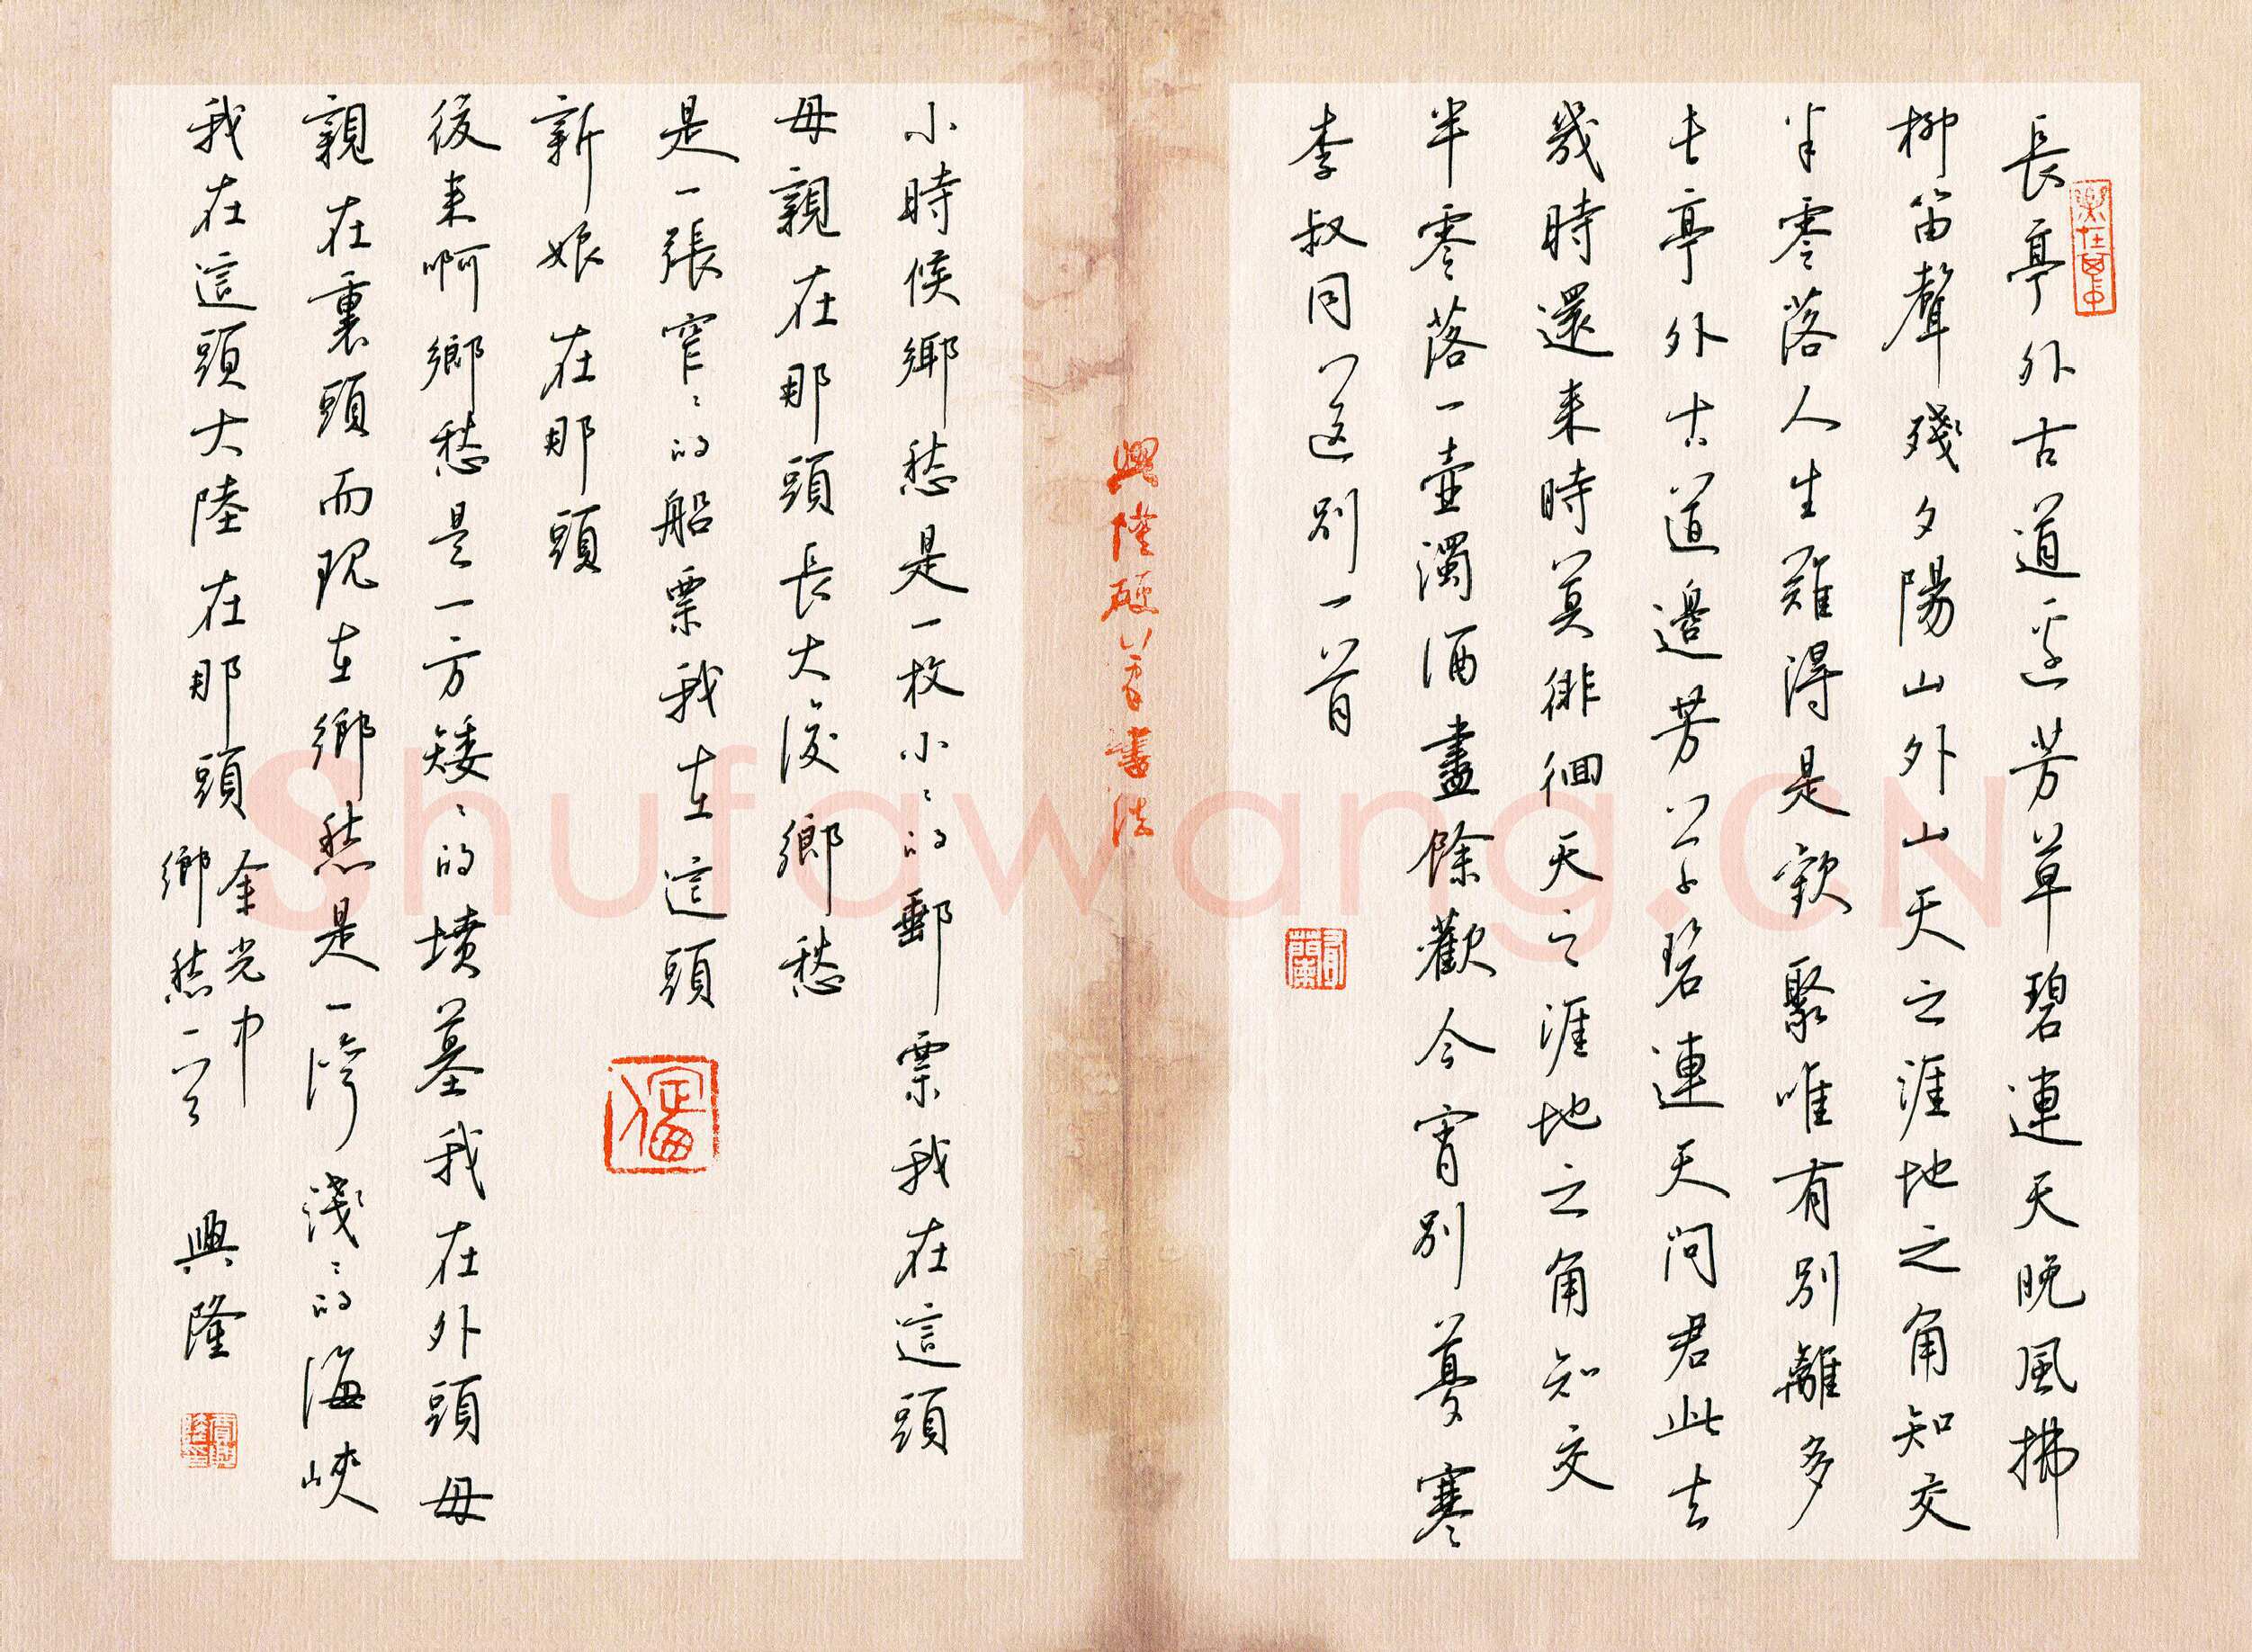 長亭外古道邊芳草碧連天晚風拂
柳笛聲殘夕陽山外山天之涯地之角知交
半零落人生難得是歡聚唯有別離多
長亭外古道邊芳草碧連天問君此去
幾時還来時莫徘徊天之涯地之角知交
半零落一壺濁酒盡餘歡今宵別夢寒
李叔同送別一首
興隆硬筆書法
小時候鄉愁是一枚小小的郵票我在這頭
母親在那頭長大後鄉愁
是一張窄窄的船票我在這頭
新娘在那頭
後来啊鄉愁是一方矮矮的墳墓我在外頭母
親在裏頭而現在鄉愁是一灣淺淺的海峽
我在這頭大陸在那頭
余光中
鄉愁一首
興隆
Shufawang.CN